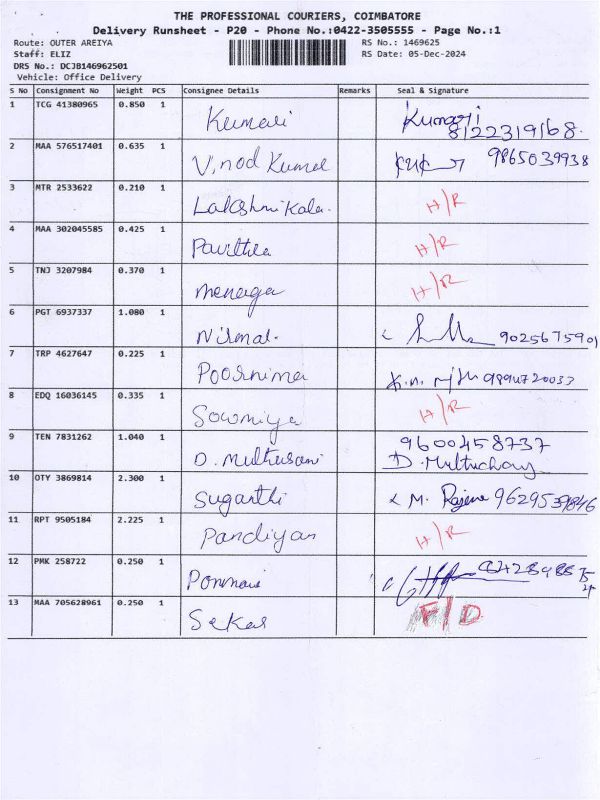 THE PROFESSIONAL COURIERS, COIMBATORE
Delivery Runsheet - P20 - Phone No.:0422-3505555 - Page No.:1
Route: OUTER AREIYA RS No.: 1469625
Staff: ELIZ RS Date: 05-Dec-2024
DRS No.: DCJB146962501
Vehicle: Office Delivery
S No Consignment No Weight PCS Consignee Details Remarks Seal & Signature
1 TCG 41380965 0.850 1 Kumari Kumari
8122319168.
2 MAA 576517401 0.635 1 Vinod Kumar 9865039938
3 MTR 2533622 0.210 1 Lakshmikala. H/R
4 MAA 302045585 0.425 1 Pavithra H/R
5 TNJ 3207984 0.370 1 Menaga H/R
6 PGT 6937337 1.080 1 Nirmal. 9025675901
7 TRP 4627647 0.225 1 Poornima
8 EDQ 16036145 0.335 1 Sowmiya H/R
9 TEN 7831262 1.040 1 D. Muthusani 9600458737
D. Muthuchamy
10 OTY 3869814 2.300 1 Suganthi M. Rajena 9629539846
11 RPT 9505184 2.225 1 Pandiyan H/R
12 PMK 258722 0.250 1 Ponmani
13 MAA 705628961 0.250 1 Sekar F/D